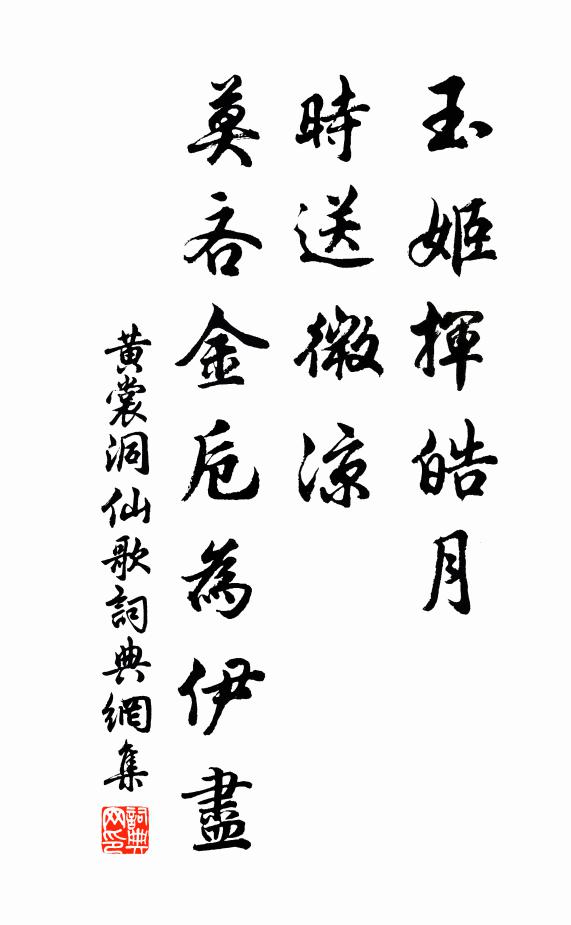 玉姬揮皓月
時送微涼
莫吝金卮為伊盡
黃裳洞仙歌詞典網集
詞典網印